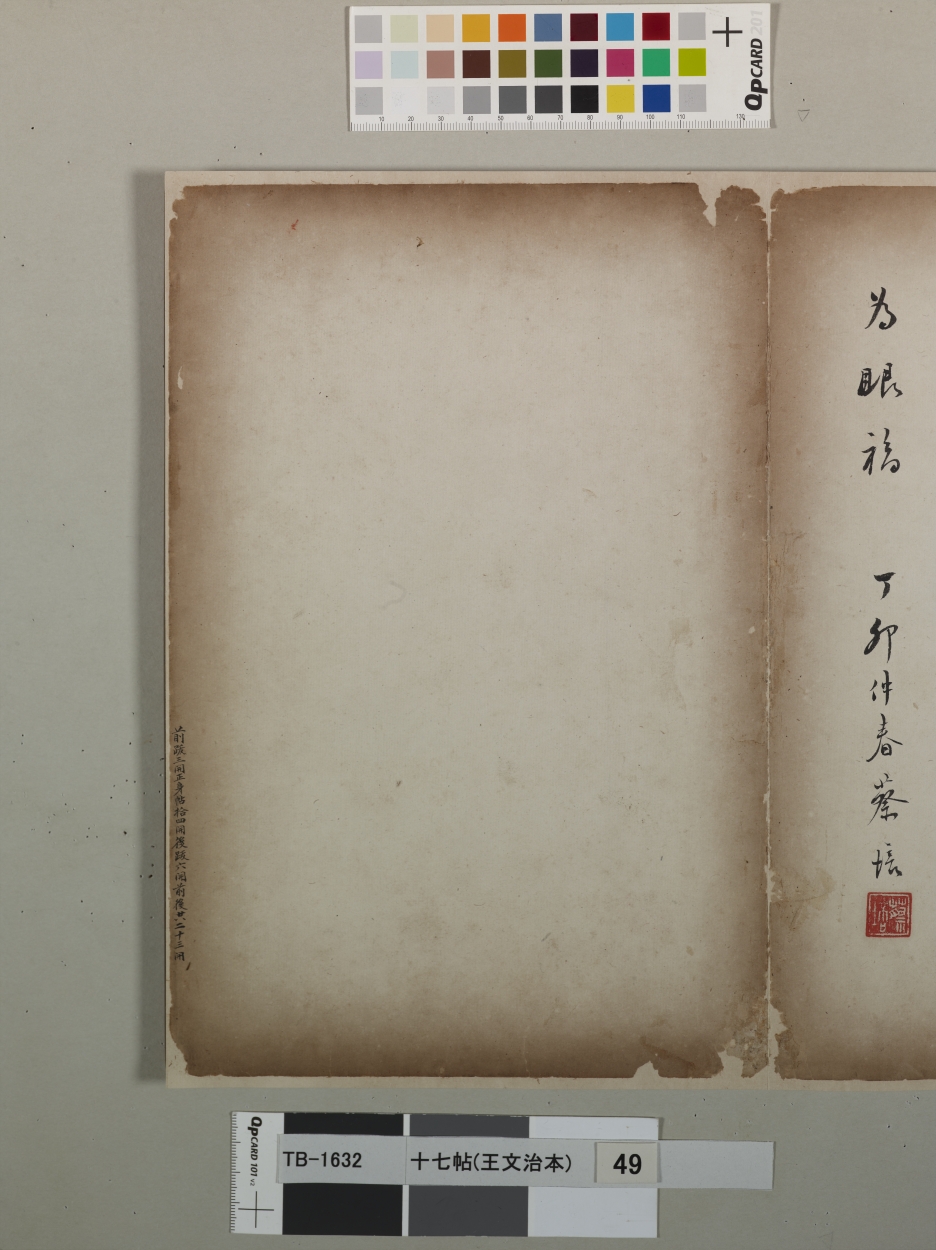 QPCARD 201
10 20 30 40 50 60 70 80 90 100 110 130
為眼福
丁卯仲春蔡培
蔡培
止前跋三開正身帖拾四開後跋六開前後共二十三開
QPCARD 101 v2
TB-1632
十七帖(王文治本)
49